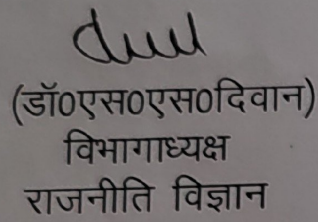 (डॉ0एस0एस0दिवान)
विभागाध्यक्ष
राजनीति विज्ञान